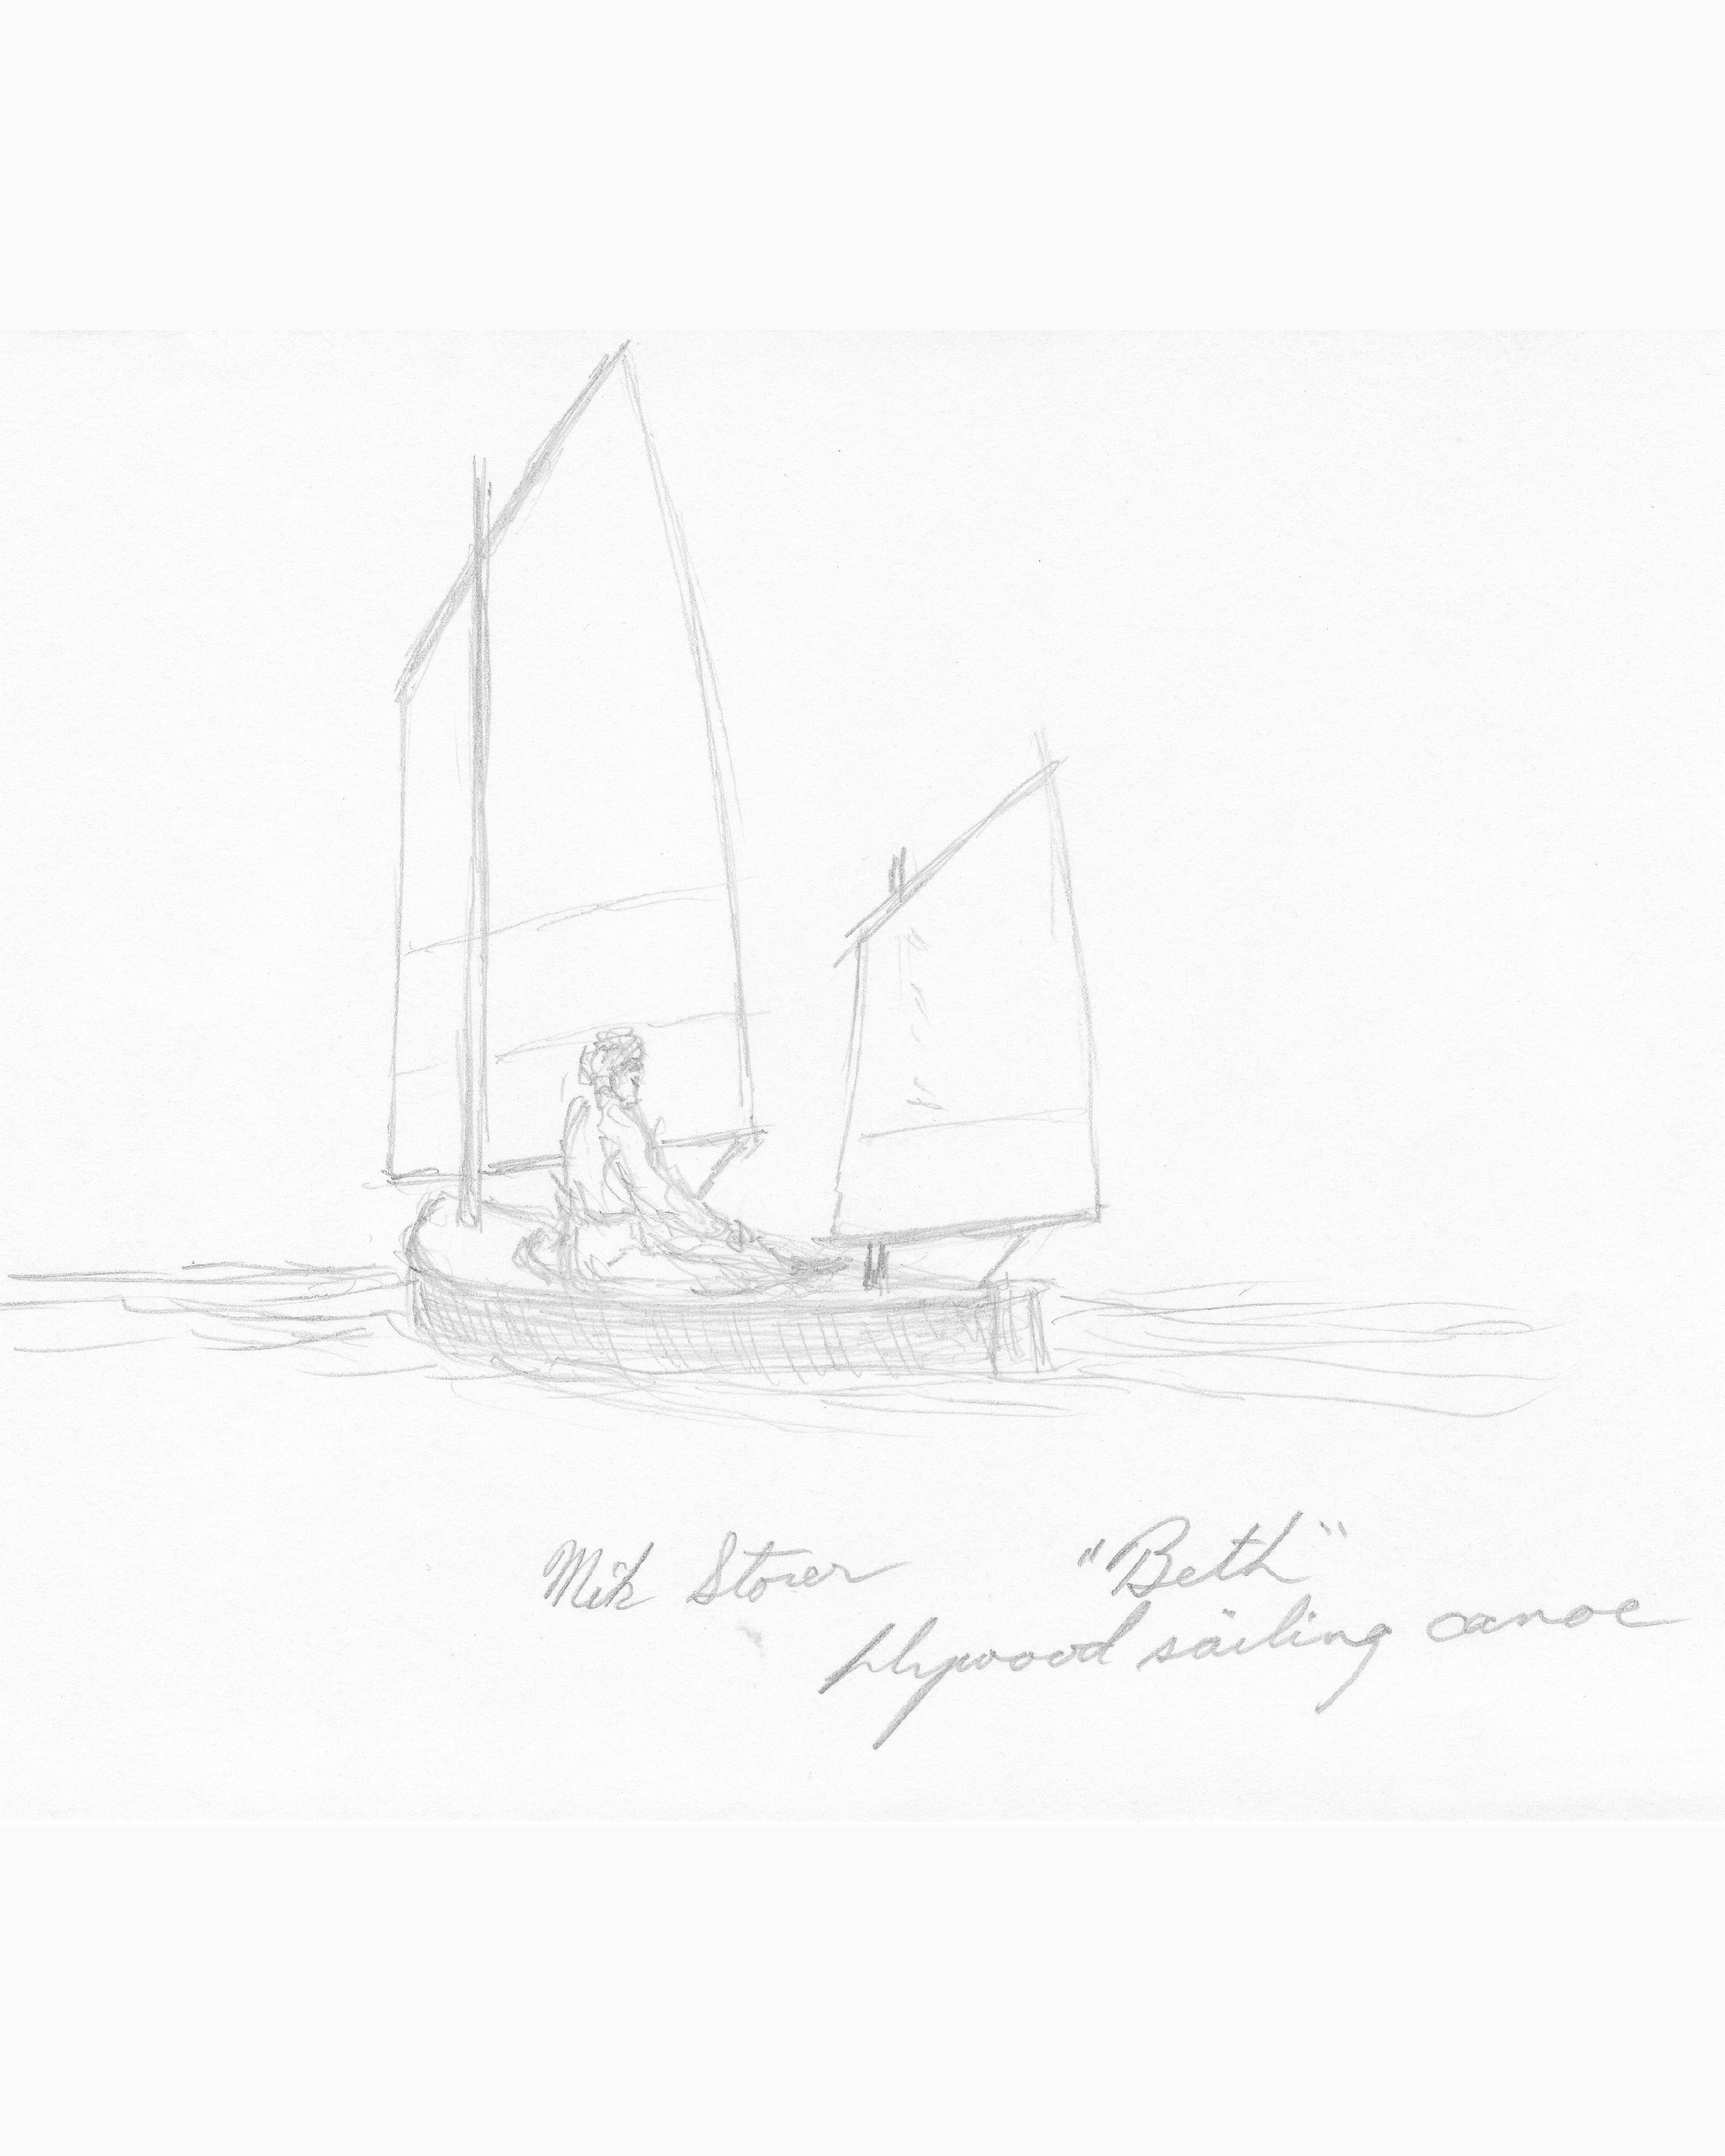 Mik Storer "Beth"
plywood sailing canoe